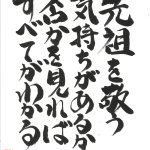 先祖を敬う
気持ちがあるか
否かを見れば
すべてがわかる